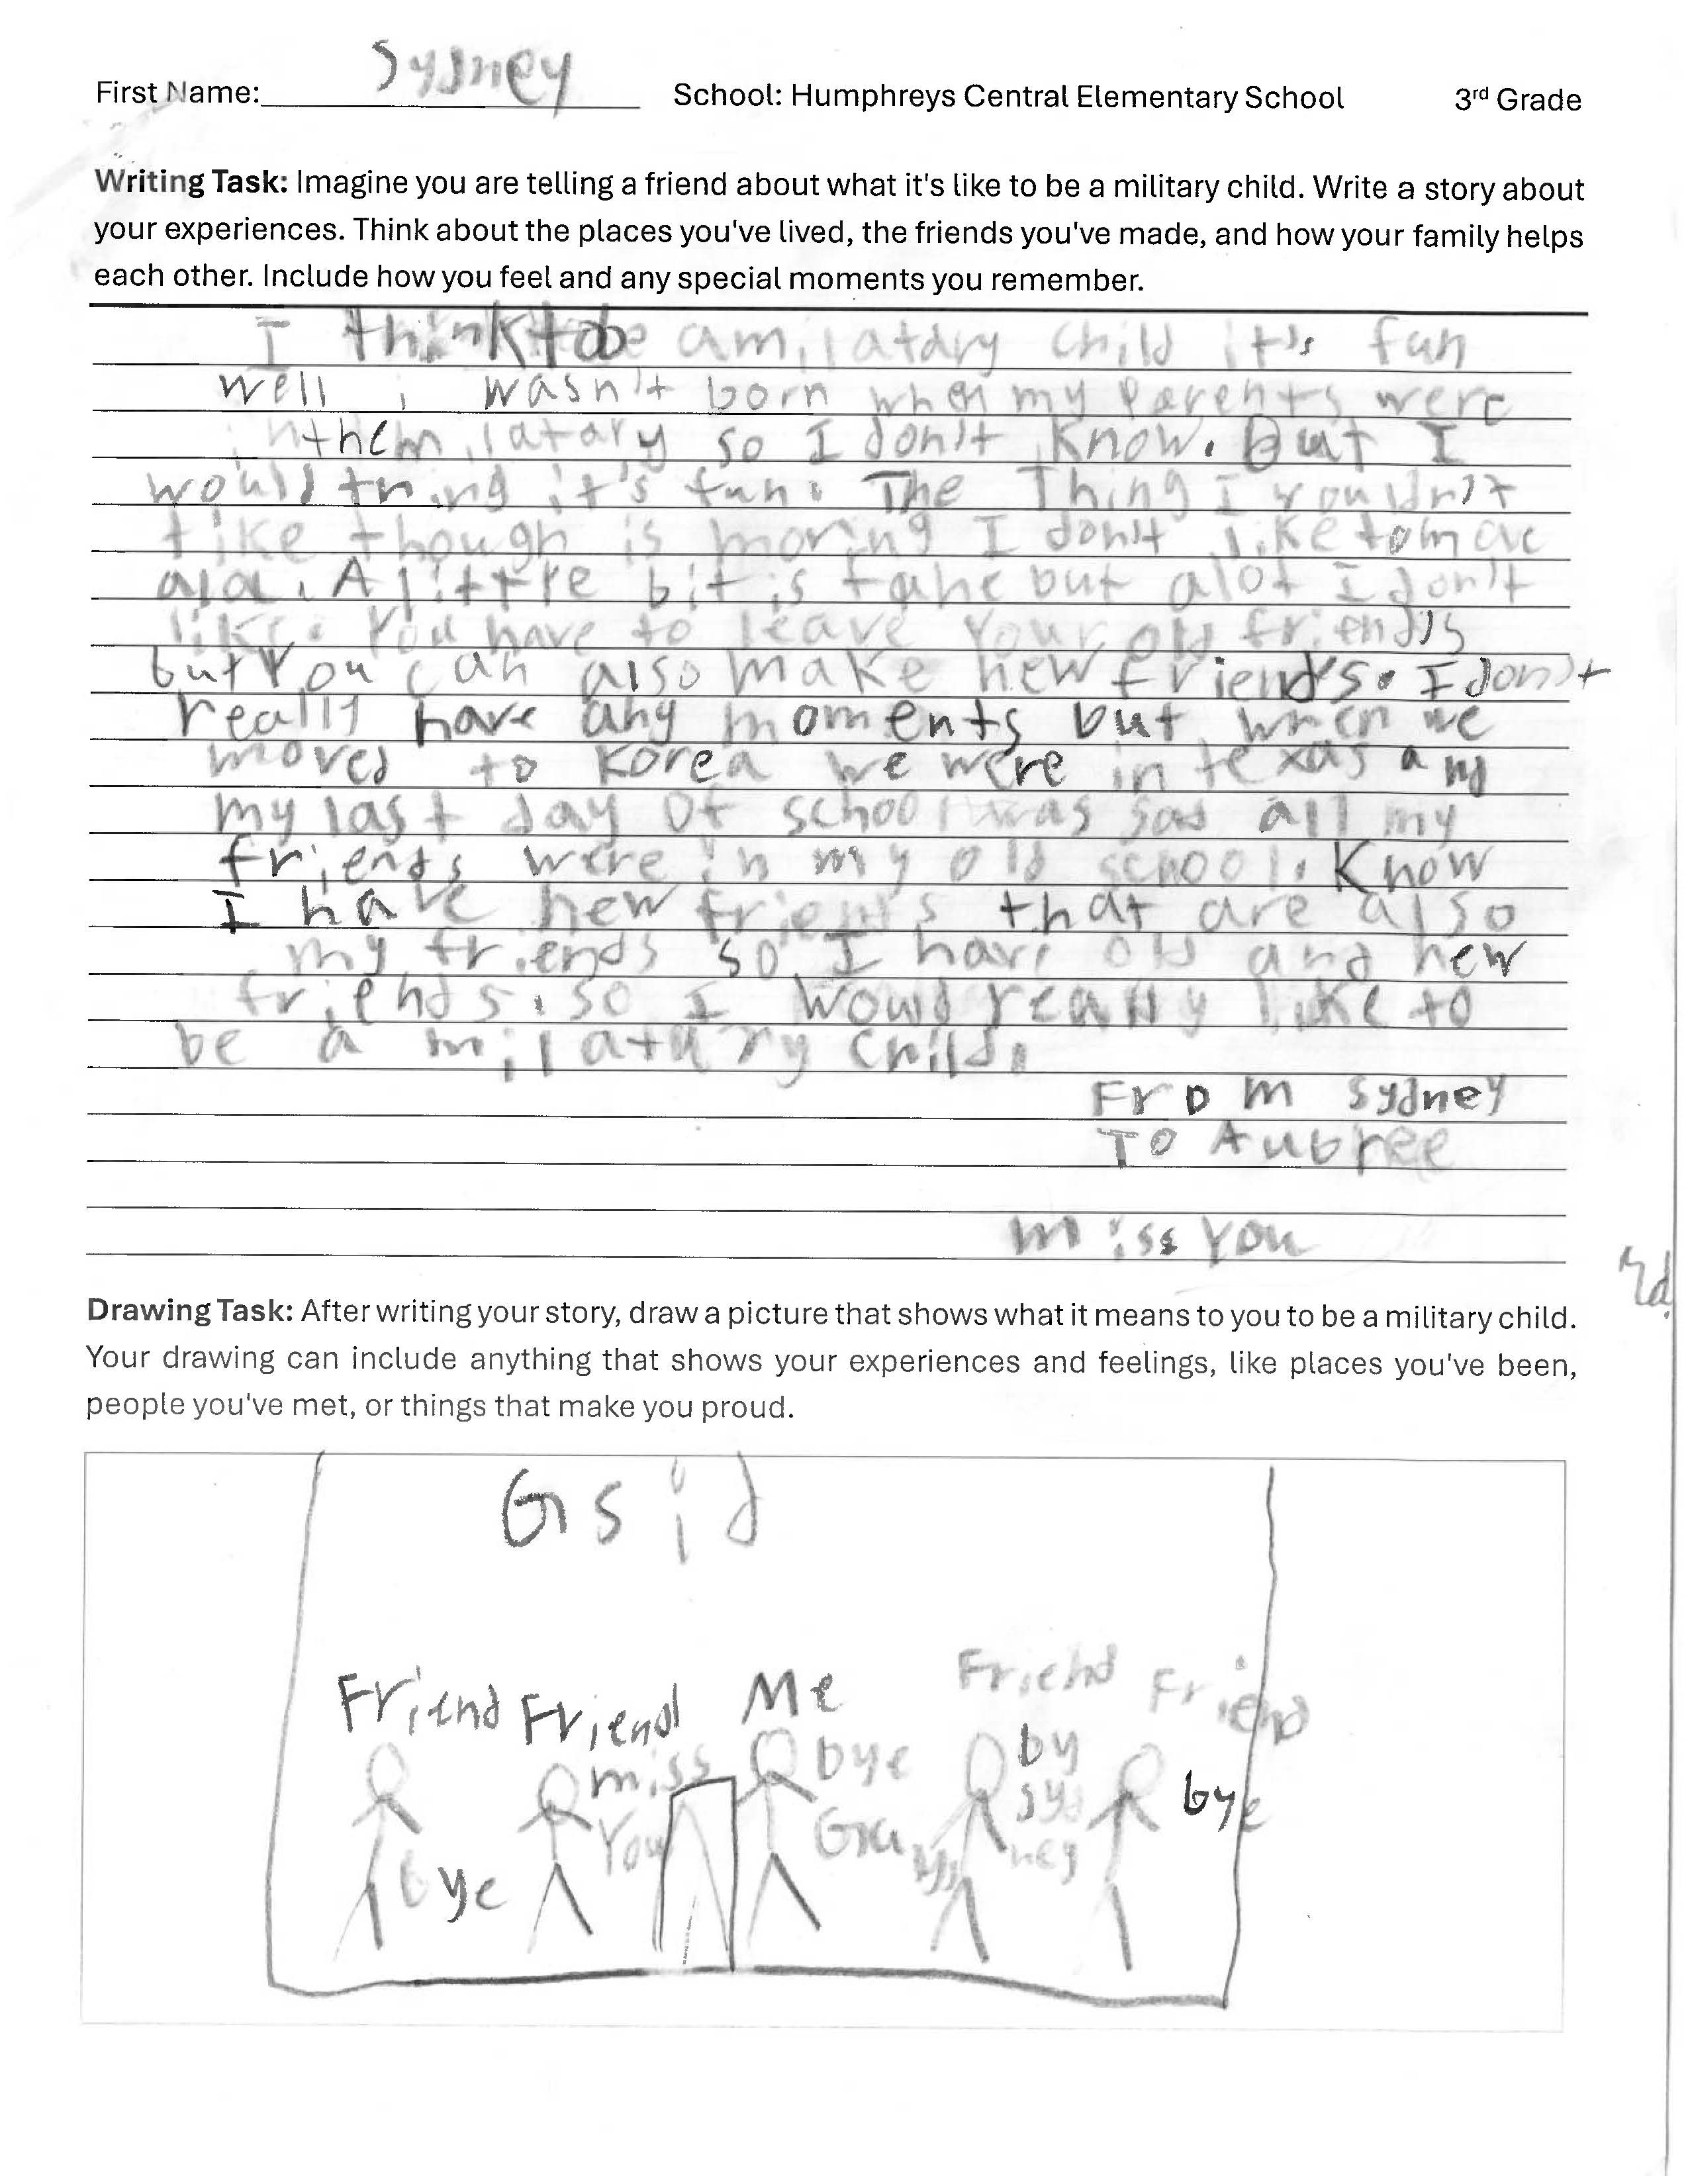 First Name: Sydney School: Humphreys Central Elementary School 3rd Grade
Writing Task: Imagine you are telling a friend about what it's like to be a military child. Write a story about
your experiences. Think about the places you've lived, the friends you've made, and how your family helps
each other. Include how you feel and any special moments you remember.
I think to be a milatary child it's fun
well i wasn't born when my parents were
in the milatary so I don't know. But I
would it's fun. The Thing I wouldn't
like though is moving I don't like to move
A little bit is but alot I don't
like. You have to leave your old friends
but You can also make new friends. I don't
really have any moments but when we
moved to Korea we were in texas and
my last day of school was sad all my
friends were in my old school. Know
I have new friends that are also
my friends so I have old and new
friends. so I would really like to
be a milatary child.
From Sydney
To Aubree
miss You
Drawing Task: After writing your story, draw a picture that shows what it means to you to be a military child.
Your drawing can include anything that shows your experiences and feelings, like places you've been,
people you've met, or things that make you proud.
Friend Friend Me Friend Friend
miss You bye by sydney bye
bye